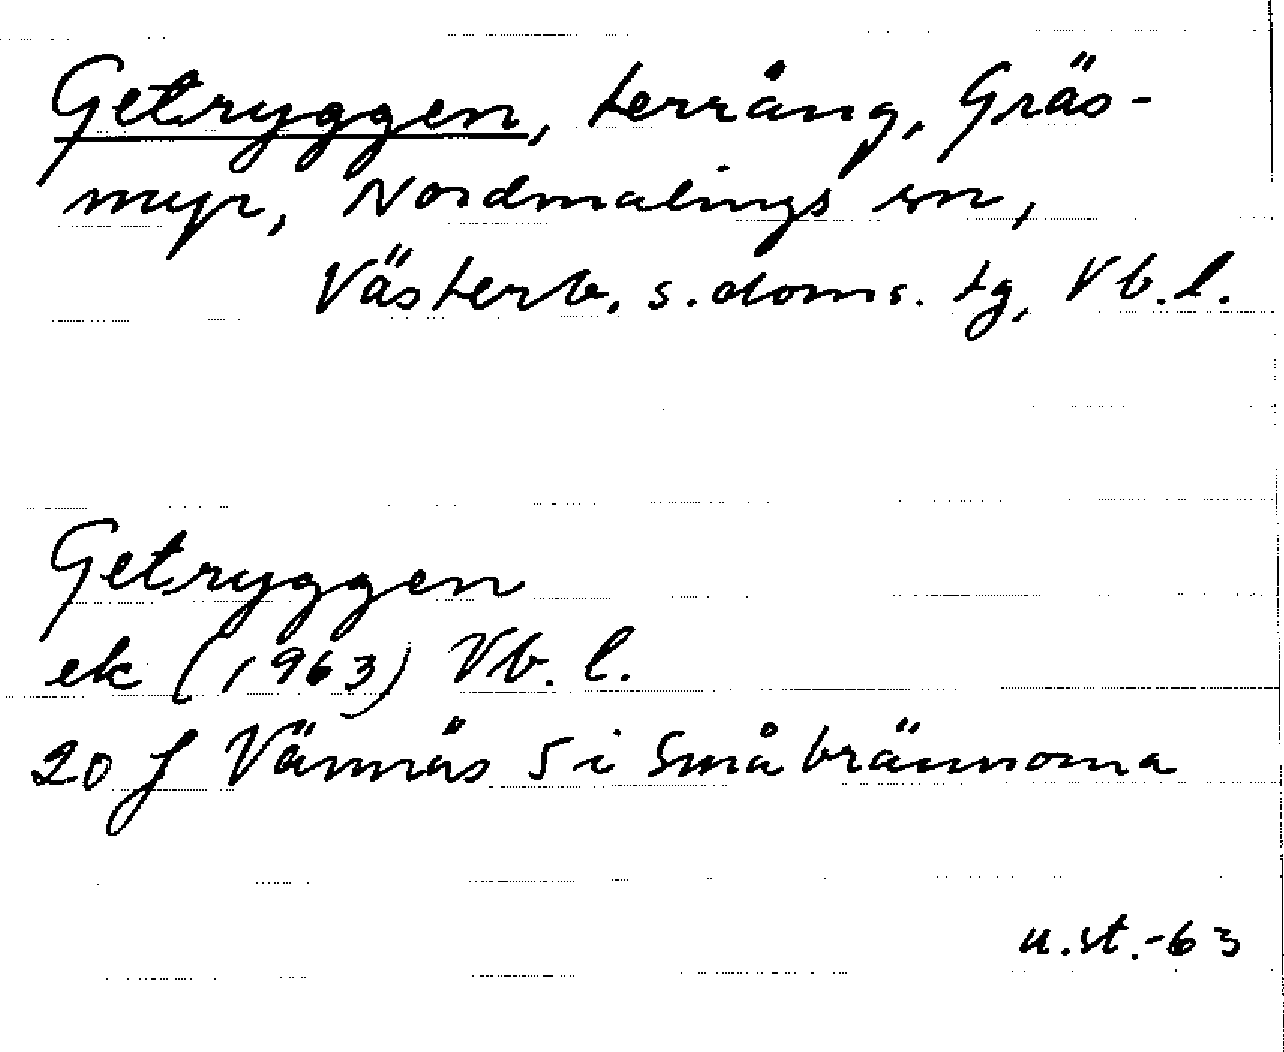 Getryggen, terräng, Gräs-
myr, Nordmalings sn,
Västerb. s. doms. tg, Vb. l.
Getryggen
ek (1963) Vb. l.
20 J Vännäs 5 i Småbrännorna
u.st.-63